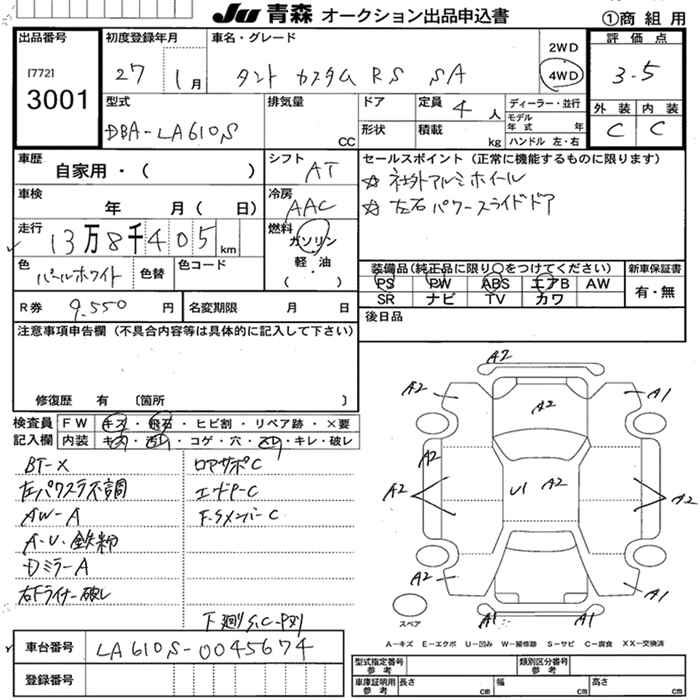 JU 青森 オークション出品申込書
①商組用
出品番号
[772]
3001
初度登録年月
27 1月
車名・グレード
タント カスタム RS SA
2WD
4WD
評価点
3.5
外装 内装
C C
型式
DBA-LA610S
排気量
CC
ドア
形状
定員 4 人
積載 kg
ディーラー・並行
モデル
年式 年
ハンドル 左・右
車歴
自家用・( )
シフト
AT
セールスポイント (正常に機能するものに限ります)
☆ 社外アルミホイール
☆ 左右パワースライドドア
車検
年 月( 日)
冷房
AAC
走行
13万8千405 km
燃料
ガソリン
軽・油
( )
色
パールホワイト
色替
色コード
装備品(純正品に限り○をつけてください)
PS PW ABS エアB AW
SR ナビ TV カワ
新車保証書
有・無
R券 9.550 円
名変期限 月 日
後日品
注意事項申告欄 (不具合内容等は具体的に記入して下さい)
修復歴 有 〔箇所 〕
検査員
記入欄
FW キズ・飛石・ヒビ割・リペア跡・×要
内装 ・コゲ・穴・・キレ・破レ
BT-X
左パワスラ不調
AW-A
A・U・鉄粉
Dミラ-A
右Fライナー破レ
ロアサポC
エンドP-C
F.SメンバーC
下廻りS.C-
A2
A2
A1
A2
A2
A2
A2
U1
A2
A2
A2
A1
A1
A1
スペア
A-キズ E-エクボ U-凹み W-補修跡 S-サビ C-腐食 XX-交換済
車台番号
LA610S-0045674
登録番号
型式指定番号
参考
類別区分番号
参考
車庫証明用
参考
長さ cm
幅 cm
高さ cm